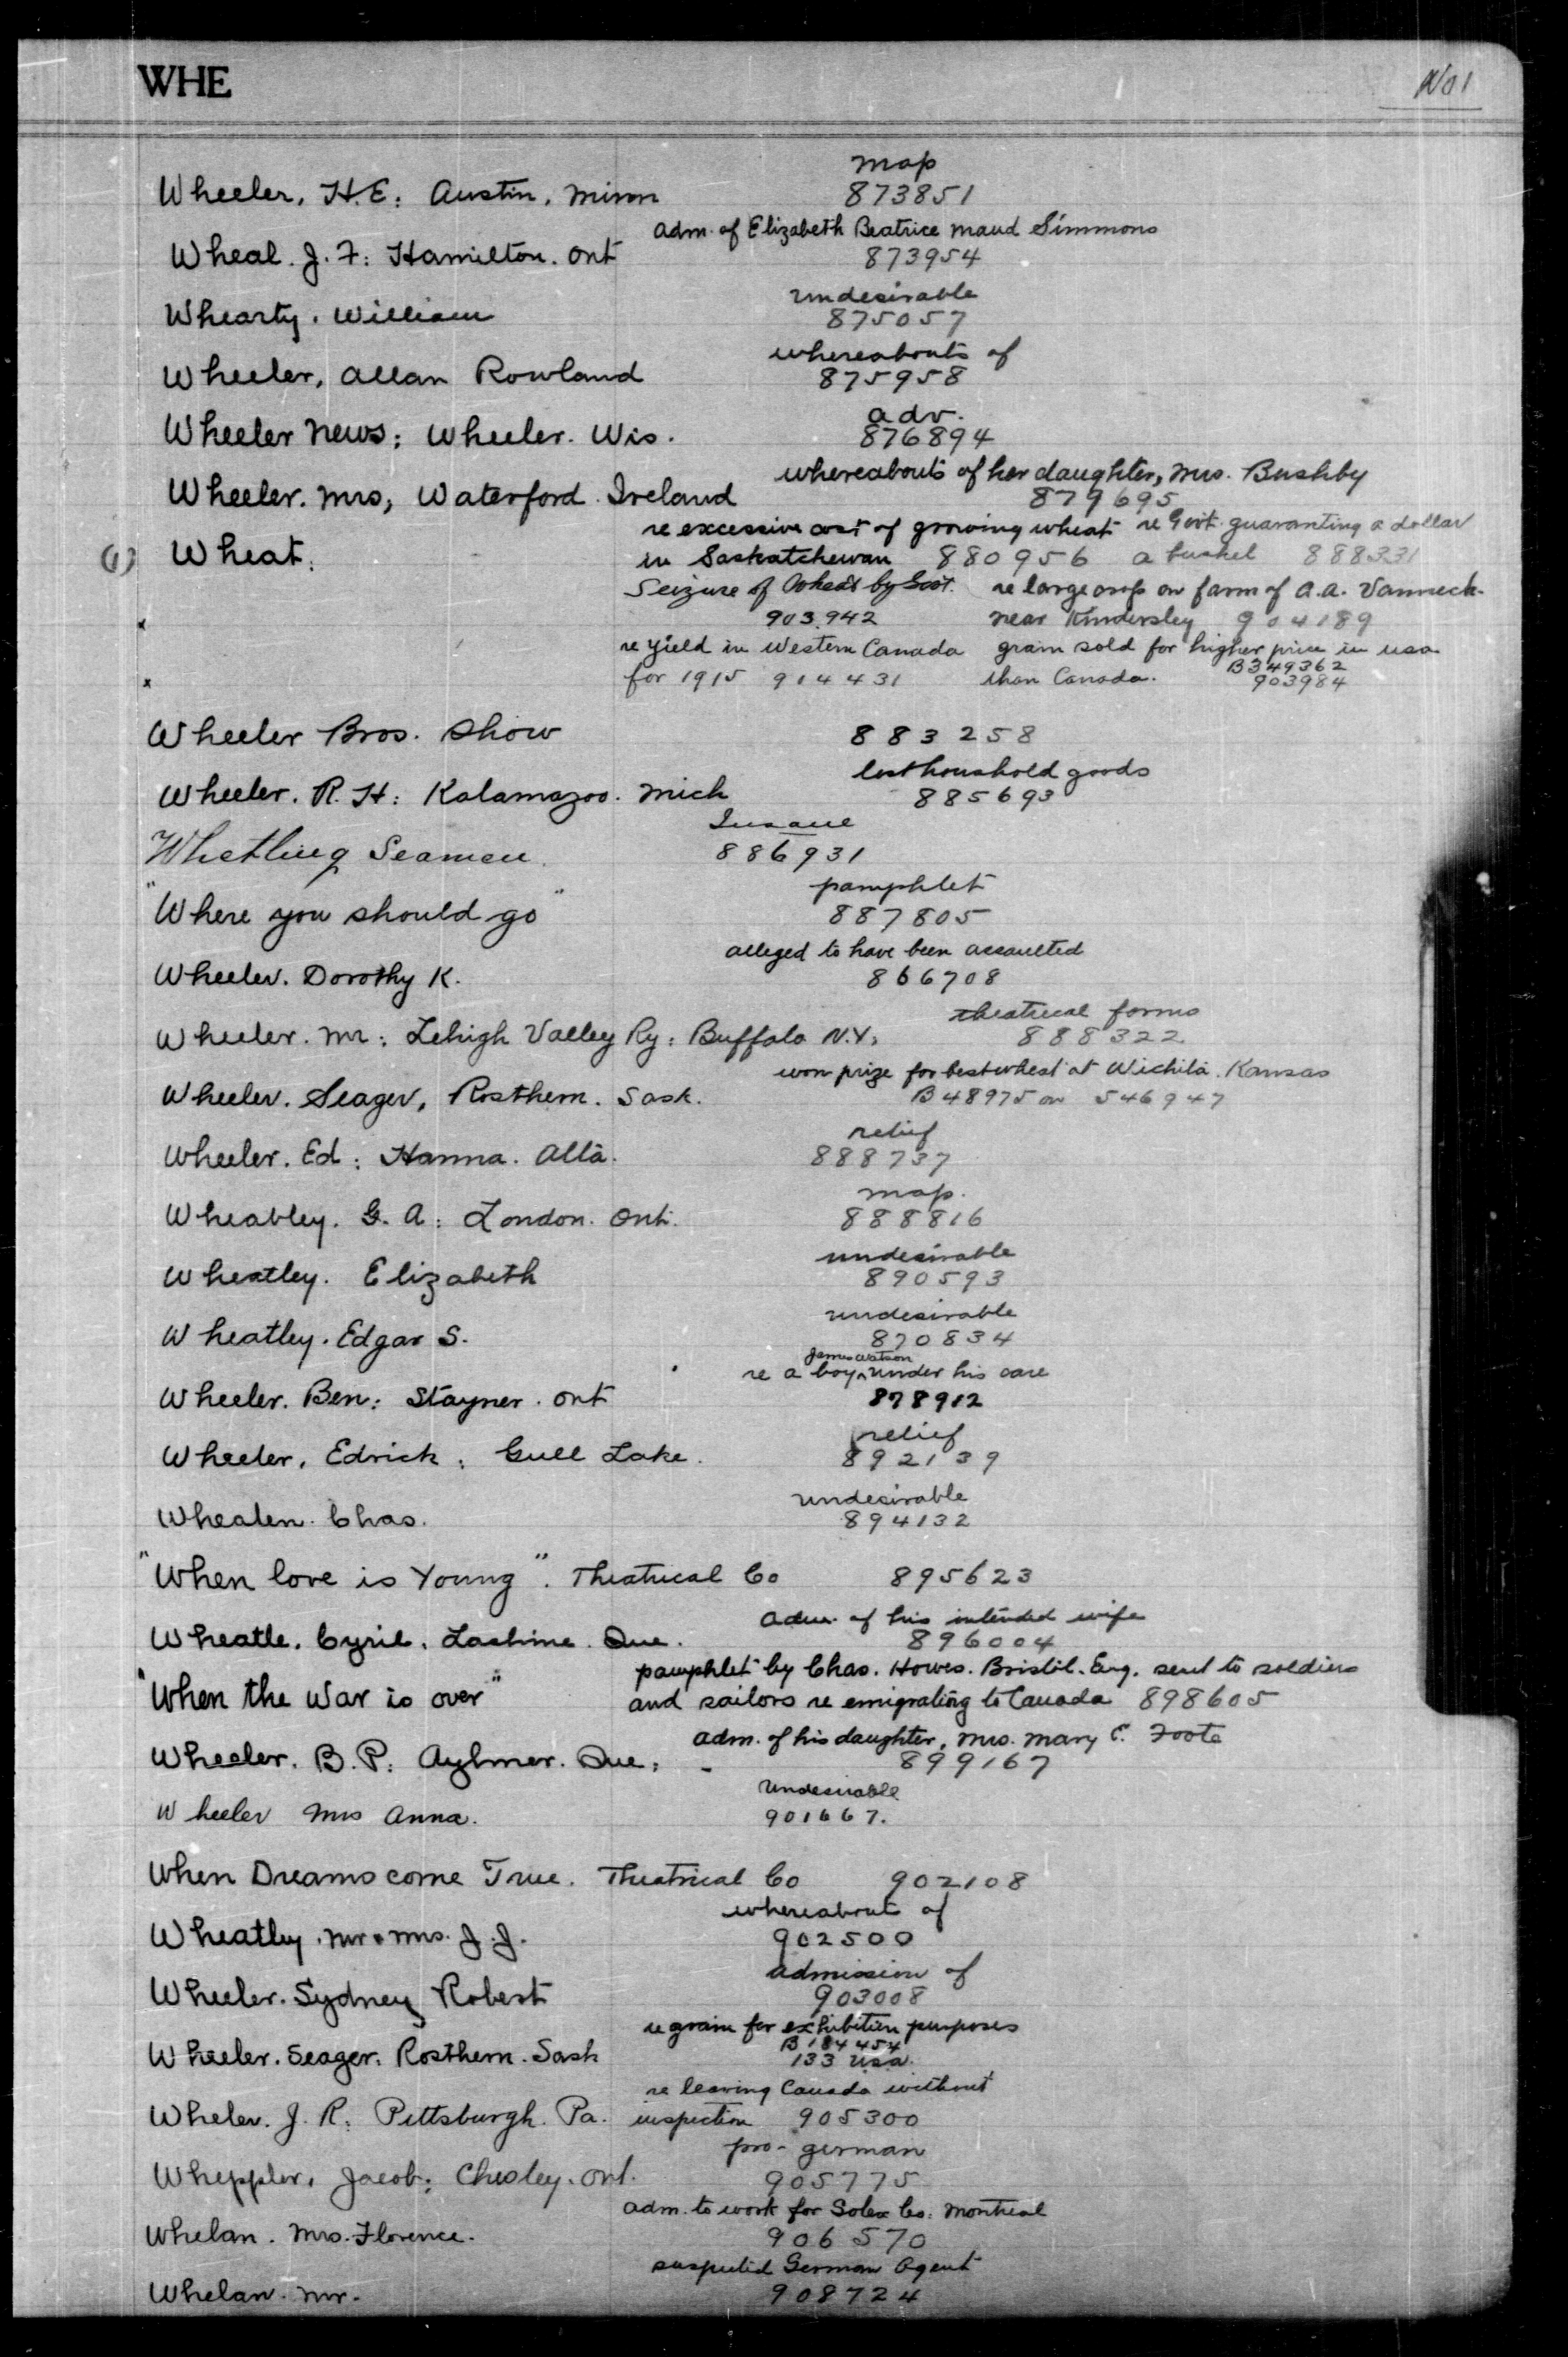 WHE
No 1
map
Wheeler, H.E: Austin, Minn 873851
adm. of Elizabeth Beatrice Maud Simmons
Wheal. J. F: Hamilton. Ont 873954
undesirable
Whearty. William 875057
whereabouts of
Wheeler, Allan Rowland 875958
adv.
Wheeler News: Wheeler. Wis. 876894
whereabouts of her daughter, Mrs. Bushby
Wheeler. Mrs, Waterford. Ireland 879695
re excessive cost of growing wheat re Govt. guaranting a dollar
(1) Wheat: in Saskatchewan 880956 a bushel 888331
Seizure of Wheat by Govt. re large crop on farm of A.A. Vanneck.
x 903942 near Kindersley 904189
re yield in Western Canada grain sold for higher price in USA
B349362
x for 1915 914431 than Canada. 903984
Wheeler Bros. Show 883258
lost household goods
Wheeler. R. H: Kalamazoo. Mich 885693
Insane
Whetling Seamen. 886931
pamphlet
"Where you should go" 887805
alleged to have been assaulted
Wheeler. Dorothy K. 866708
theatrical forms
Wheeler. Mr: Lehigh Valley Ry: Buffalo N.Y. 888322
won prize for best wheat at Wichita. Kansas
Wheeler. Seager, Rosthern. Sask. B48975 on 546947
relief
Wheeler. Ed: Hanna. Alta. 888737
map.
Wheatley. G. A: London. Ont. 888816
undesirable
Wheatley. Elizabeth 890593
undesirable
Wheatley. Edgar S. 870834
James Watson
re a boy ^ under his care
Wheeler. Ben: Stayner. Ont 878912
relief
Wheeler, Edrick: Gull Lake. 892139
undesirable
Whealen. Chas. 894132
"When love is Young". Theatrical Co 895623
adm. of his intended wife
Wheatle. Cyril. Lachine. Que. 896004
pamphlet by Chas. Howes. Bristol. Eng. sent to soldiers
"When the War is over" and sailors re emigrating to Canada 898605
adm. of his daughter, Mrs. Mary C. Foote
Wheeler. B. P: Aylmer. Que: - 899167
Undesirable
Wheeler Mrs Anna. 901667.
When Dreams come True. Theatrical Co 902108
whereabout of
Wheatley. Mr & Mrs. J. J. 902500
admission of
Wheeler. Sydney Robert 903008
re grain for exhibition purposes
B 184454
Wheeler. Seager. Rosthern. Sask 133 USA.
re leaving Canada without
Wheler. J. R: Pittsburgh. Pa. inspection 905300
pro-german
Wheppler, Jacob: Chesley. Ont. 905775
adm. to work for Solex Co: Montreal
Whelan. Mrs. Florence. 906570
suspected German Agent
Whelan. Mr. 908724